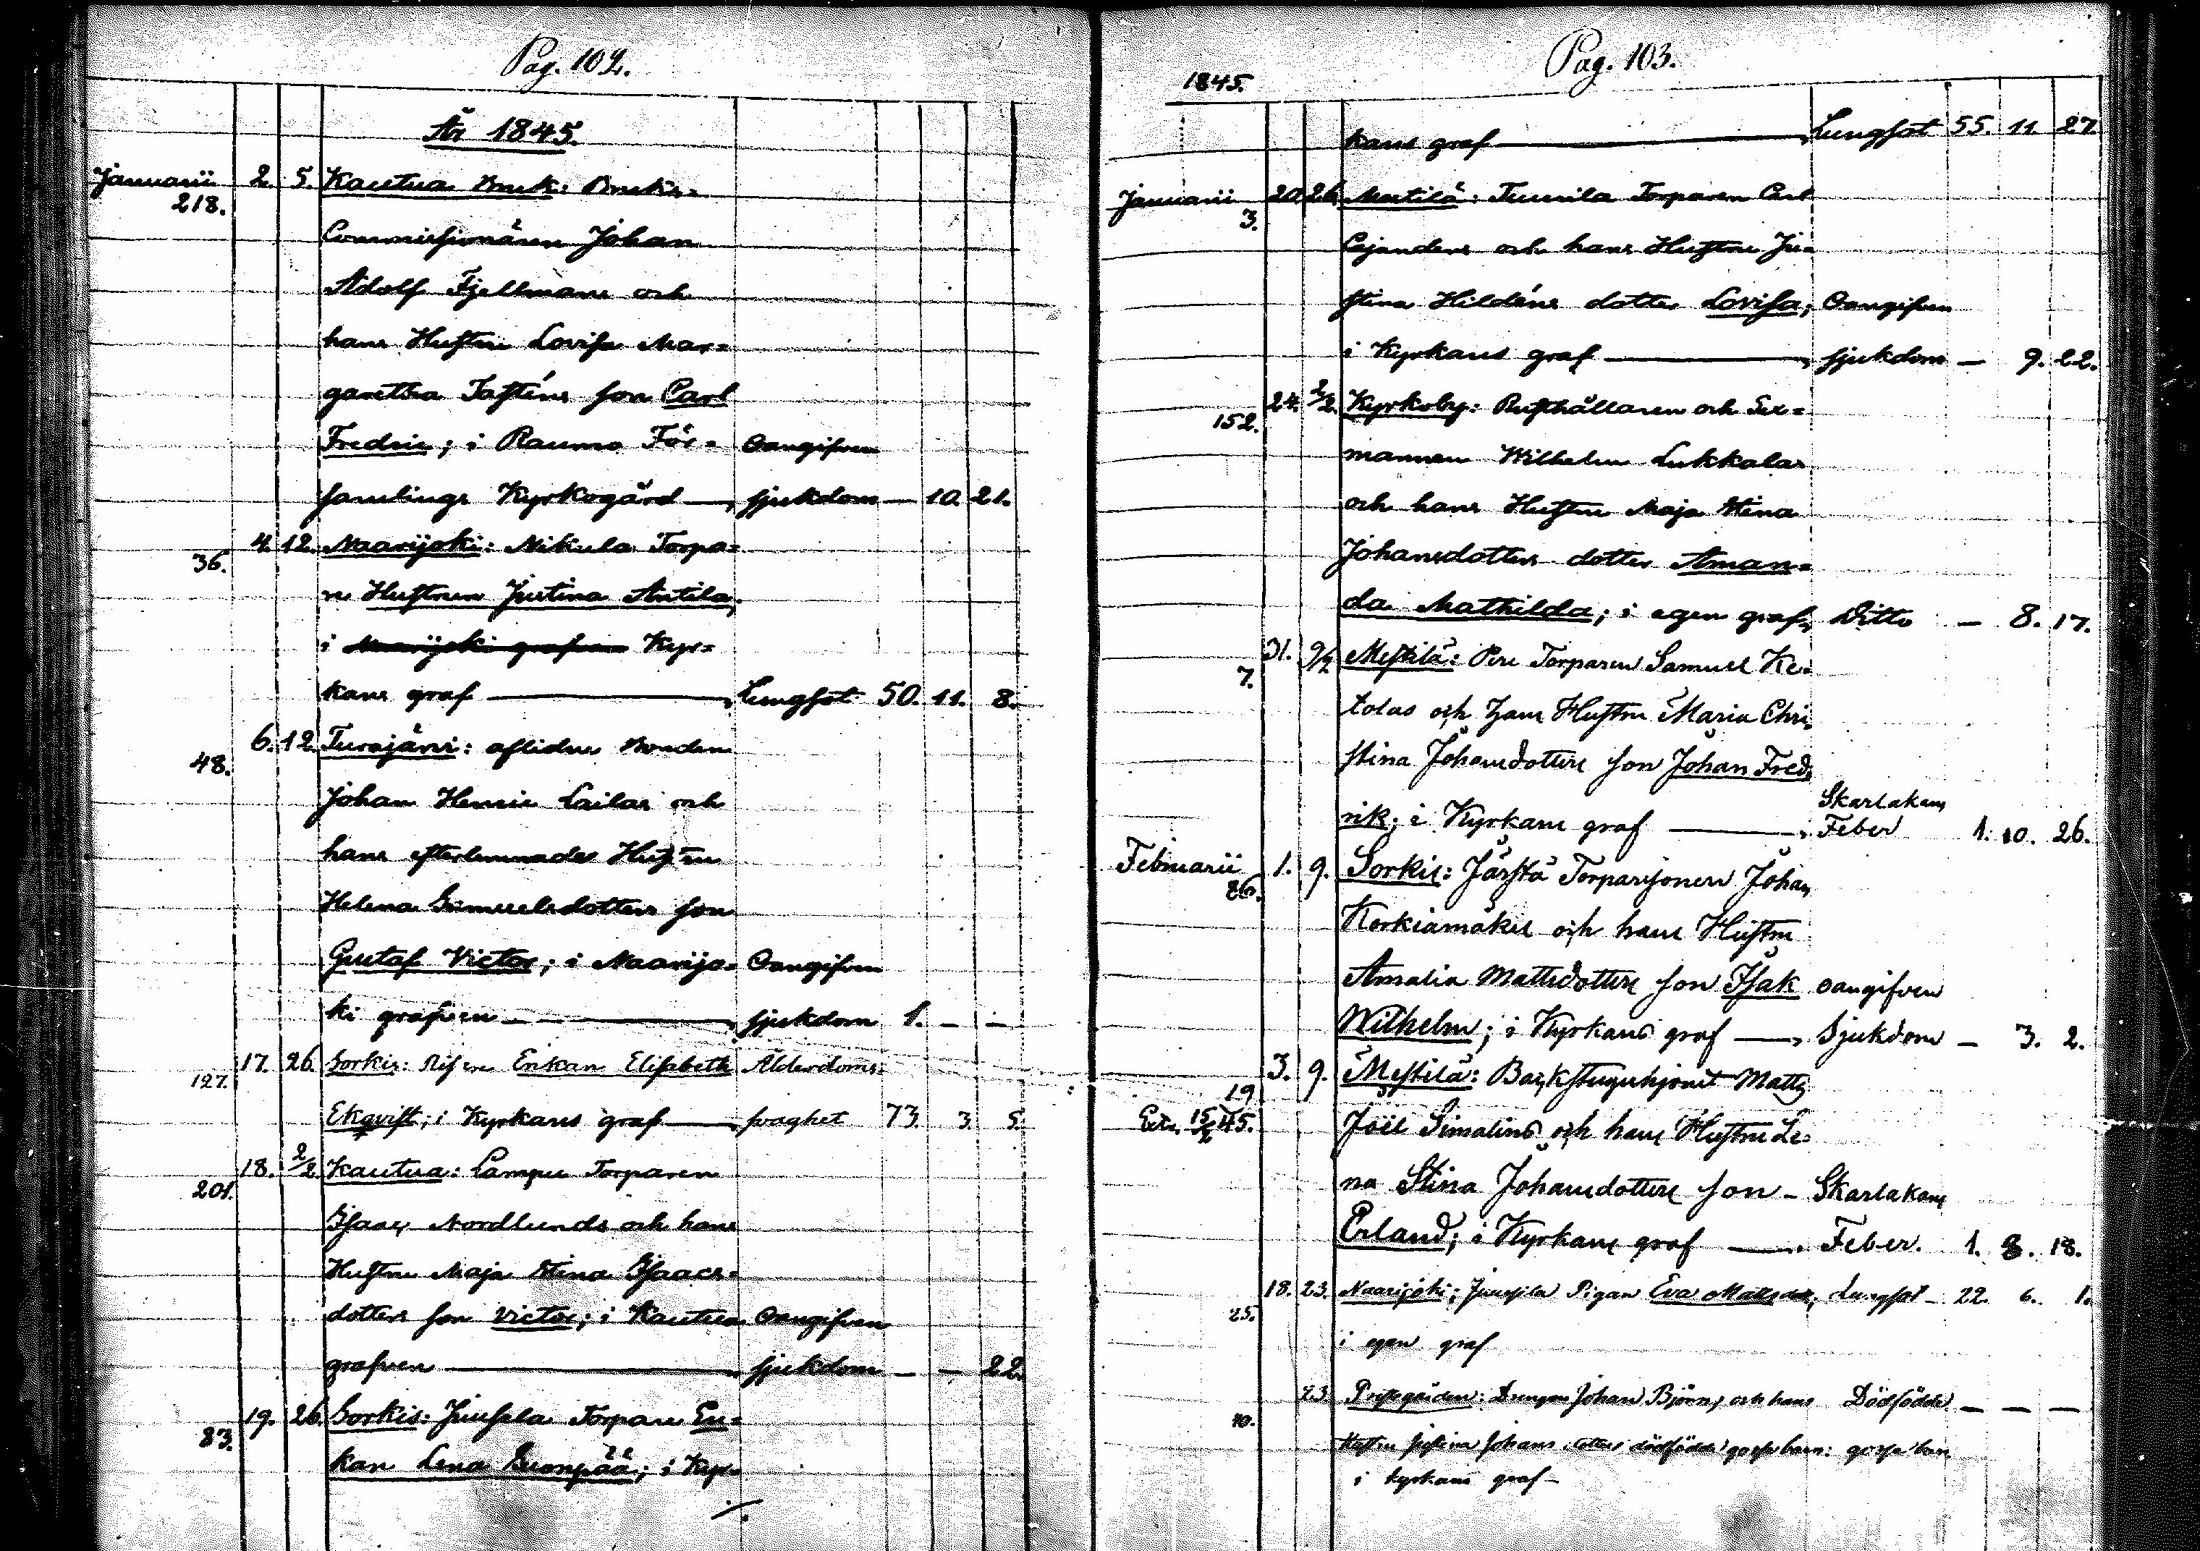 Pag. 102.
År 1845.
Januarii 2. 5. Kautua Bruk: Bruks-
218.
Commissionären Johan
Adolf Fjellmans och
hans Hustru Lovisa Mar=
garetha Tasténs son Carl
Fredric; i Raumo För= Oangifven
samlings Kyrkogård —, sjukdom — 10. 21.
4. 12. Naarijoki: Nikula Torpa=
36.
re Hustrun Justina Antila,
i Naarijoki grafven Kyr=
kans graf —, Lungsot 50. 11. 8.
6. 12. Turajärvi: aflidne Bonden
48.
Johan Henric Lailas och
hans efterlemnades Hustru
Helena Samuelsdotters son
Gustaf Victor; i Naarijo= Oangifven
ki grafven — —, sjukdom 1. — —
17. 26. Sorkis: Enkan Elisabeth Ålderdoms
127.
Ekqvist; i Kyrkans graf —, svaghet 73. 3. 5.
18. 2/2. Kautua: Lampu Torparen
201.
Isaac Nordlunds och hans
Hustru Maja Stina Isaacs=
dotters son Victor; i Kautua Oangifven
grafven —, sjukdom — — 22.
19. 26. Sorkis: Juusela Torpare En=
83.
kan Lena; i Kyr=
./.
Pag. 103.
1845.
kans graf —, Lungsot 55. 11. 27.
Januarii 20. 26. Mestilä: Tuumila Torparen Carl
3.
Cajanders och hans Hustru Ju=
stina Hildéns dotter Lovisa; Oangifven
i Kyrkans graf —, sjukdom — 9. 22.
24. 2/2. Kyrkoby: Rusthållaren och Sex=
152.
mannen Wilhelm Lukkalas
och hans Hustru Maja Stina
Johansdotters dotter Aman=
da Mathilda; i egen graf, Ditto — 8. 17.
31. 9/2 Mestilä: Pere Torparen Samuel Ke=
7.
tolas och hans Hustru Maria Chri=
stina Johansdotters son Johan Fred=
Skarlakans
rik; i Kyrkans graf —. Feber 1. 10. 26.
Februarii 1. 9. Sorkis: Järstä Torparsonen Johan
86.
Korkiamäkis och hans Hustru
Amalia Mattsdotters son Isak oangifven
Wilhelm; i Kyrkans graf —, Sjukdom — 3. 2.
3. 9. Mestilä: Backstuguhjonet Matts
19
15/2 45. Joël Simalins och hans Hustru Le=
na Stina Johansdotters son — Skarlakans
Erland; i Kyrkans graf —. Feber. 1. 8. 18.
18. 23. Naarijoki; Juusela Pigan Eva Mattsdr, Lungsot — 22. 6. 1.
25.
i egen graf
23. Prestgården: Drengen Johan Björns och hans Dödfödde — — —
10.
Hustru Justina Johansdotters dödfödde gosse barn: gosse barn
i kyrkans graf —